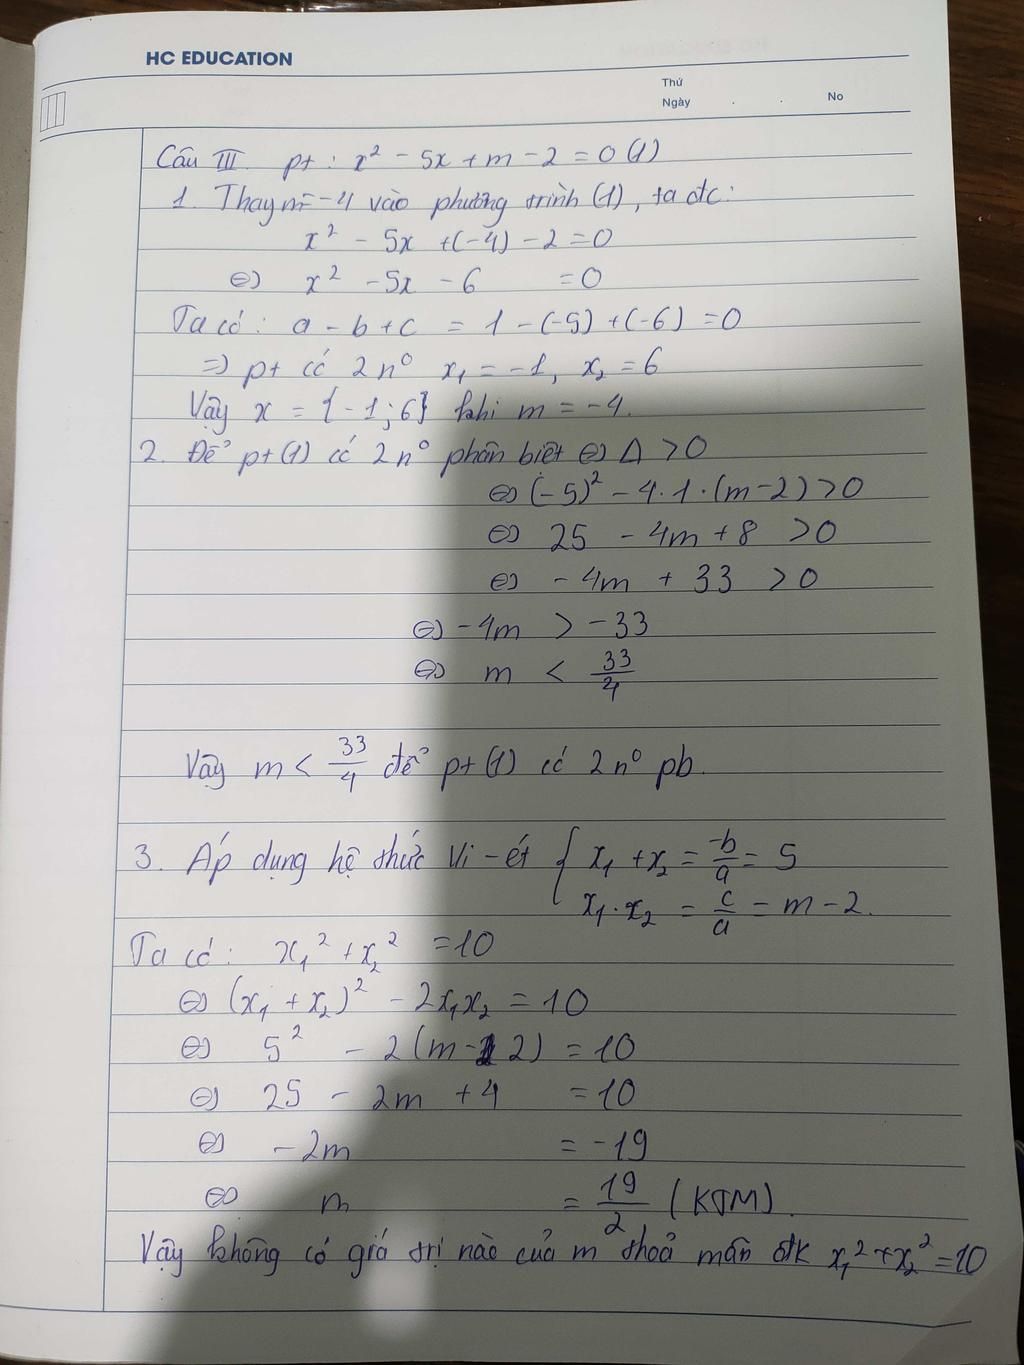 HC EDUCATION
Thứ
Ngày . . No
Câu III. pt : x² - 5x + m - 2 = 0 (1)
1. Thay m = -4 vào phương trình (1), ta đc:
x² - 5x + (-4) - 2 = 0
⇔ x² - 5x - 6 = 0
Ta có: a - b + c = 1 - (-5) + (-6) = 0
=> pt có 2 n⁰ x₁ = -1, x₂ = 6
Vậy x = {-1; 6} khi m = -4.
2. Để pt (1) có 2 n⁰ phân biệt ⇔ Δ > 0
⇔ (-5)² - 4.1.(m-2) > 0
⇔ 25 - 4m + 8 > 0
⇔ -4m + 33 > 0
⇔ -4m > -33
⇔ m < 33/4
Vậy m < 33/4 để pt (1) có 2 n⁰ pb.
3. Áp dụng hệ thức Vi-ét { x₁ + x₂ = -b/a = 5
x₁.x₂ = c/a = m - 2.
Ta có: x₁² + x₂² = 10
⇔ (x₁ + x₂)² - 2x₁x₂ = 10
⇔ 5² - 2(m - 2) = 10
⇔ 25 - 2m + 4 = 10
⇔ -2m = -19
⇔ m = 19/2 (KTM).
Vậy không có giá trị nào của m thoả mãn đk x₁² + x₂² = 10